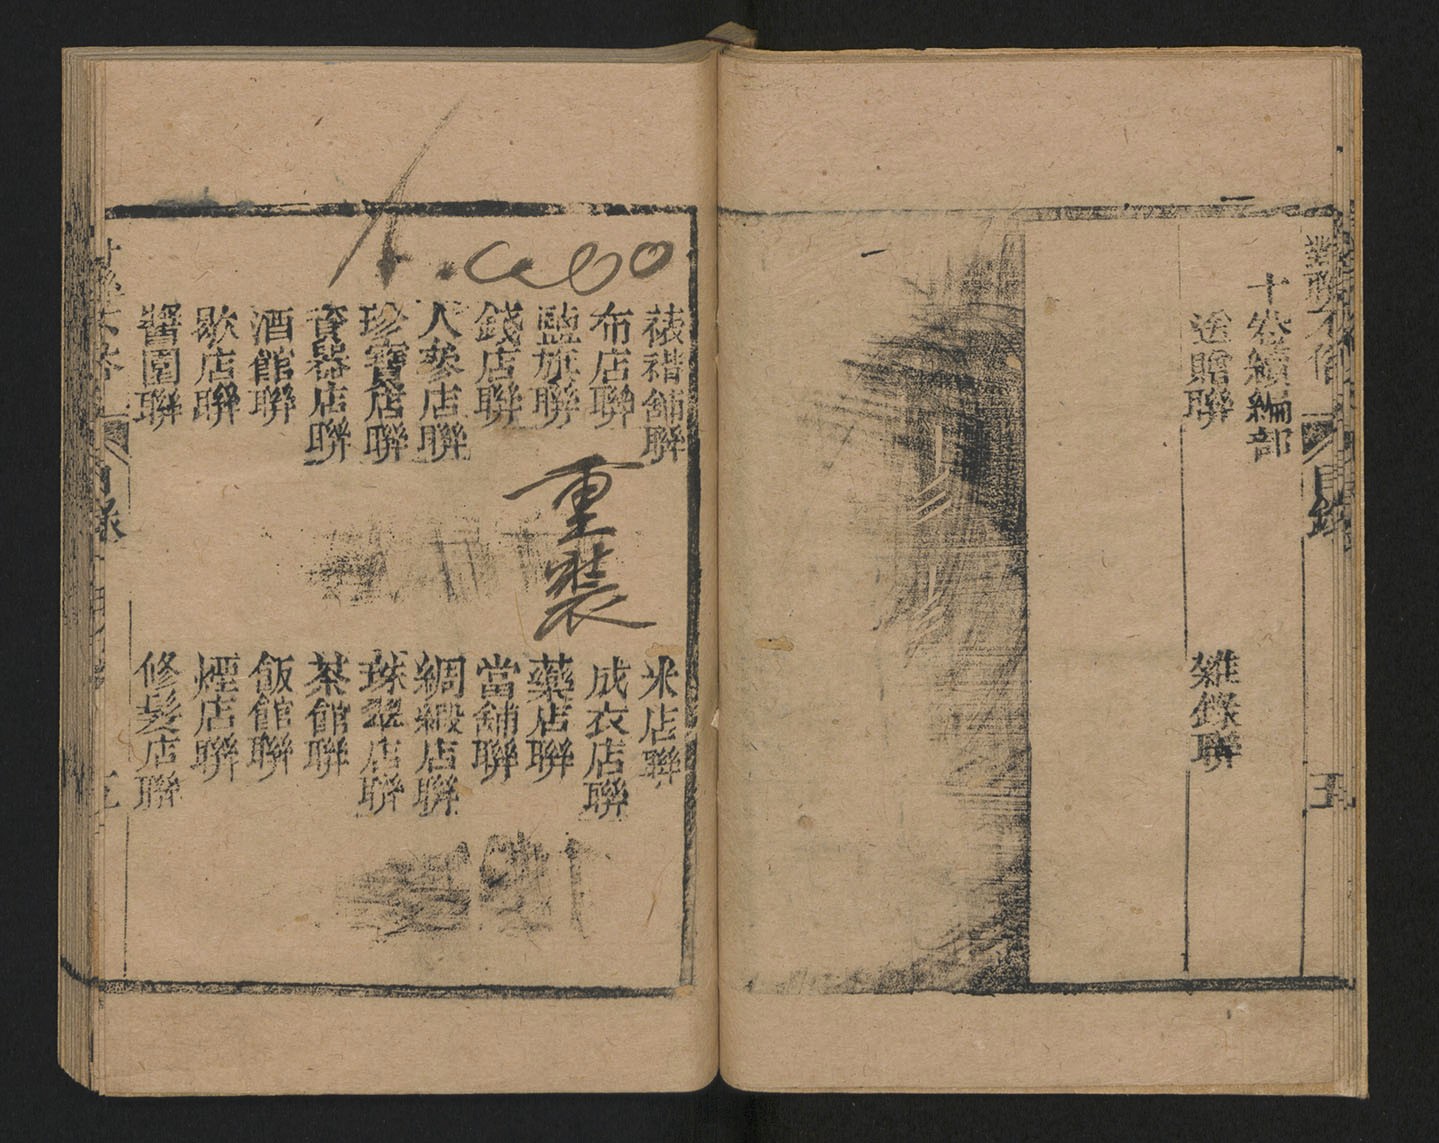 對聯不俗
目錄
五
十卷續編部
送贈聯
雜錄聯
裱褙舖聯
米店聯
布店聯
成衣店聯
鹽旗聯
藥店聯
錢店聯
當舖聯
人參店聯
綢緞店聯
珍寶店聯
珠翠店聯
瓷器店聯
茶館聯
酒館聯
飯館聯
歇店聯
煙店聯
醬園聯
修髮店聯
目錄
重裝